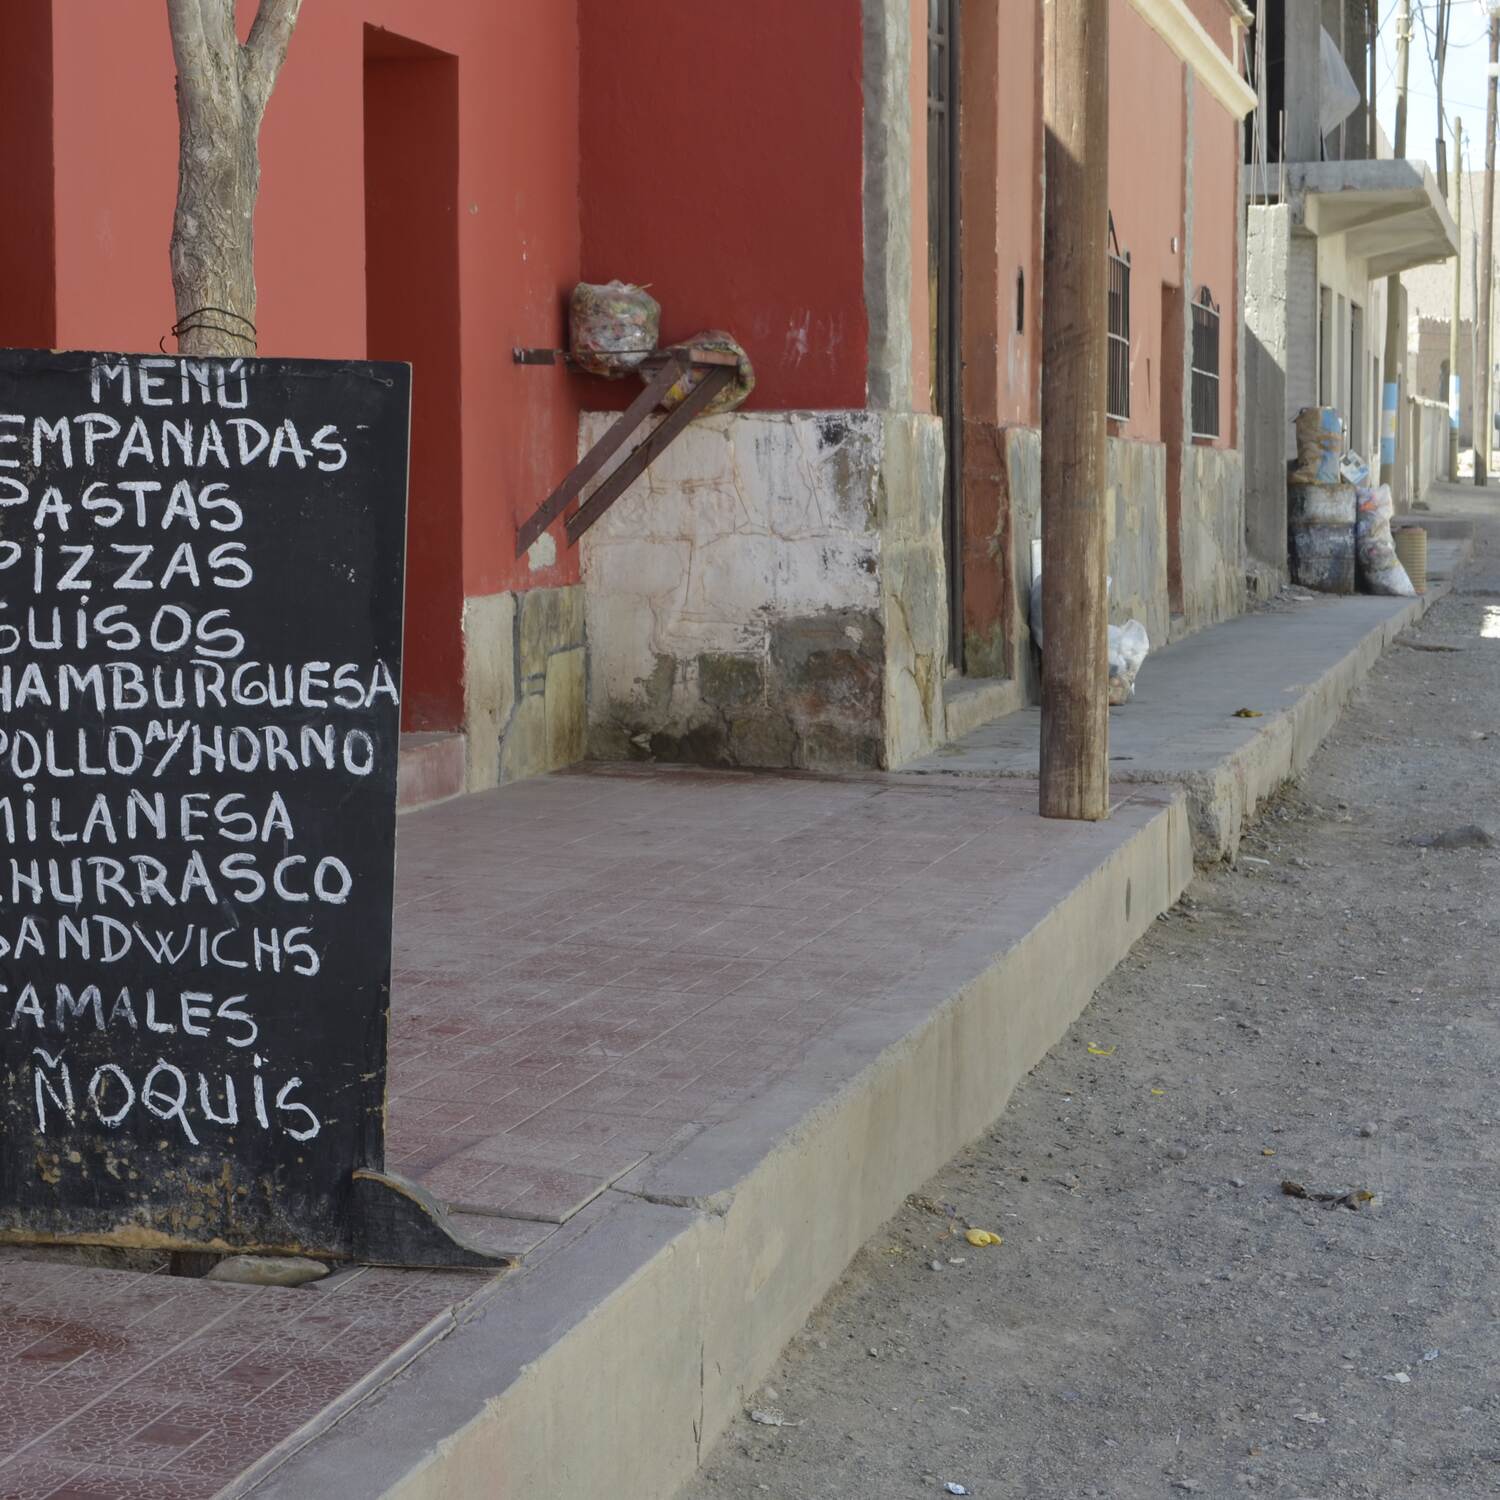 MENÚ
EMPANADAS
PASTAS
PIZZAS
GUISOS
HAMBURGUESA
POLLO AL/HORNO
MILANESA
CHURRASCO
SANDWICHS
TAMALES
ÑOQUIS